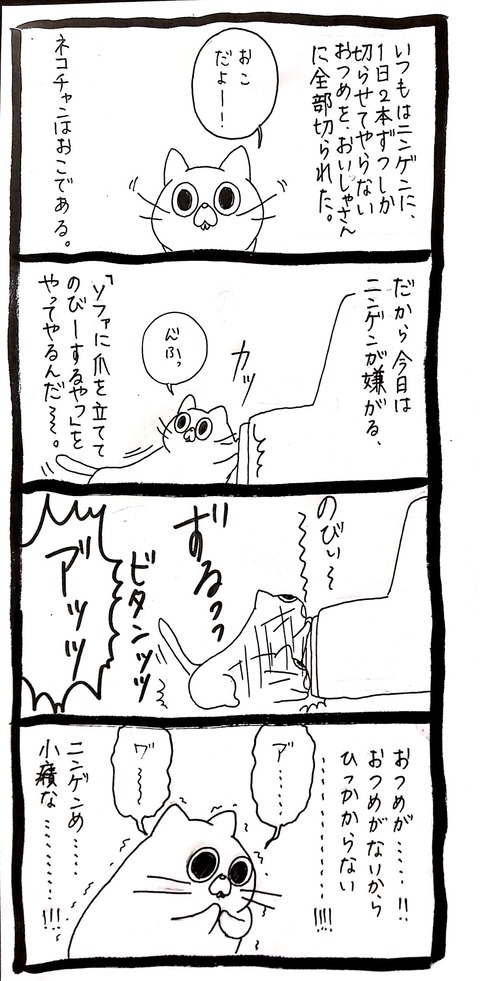 いつもはニンゲンに、
1日2本ずつしか
切らせてやらない
おつめを、おいしゃさん
に全部切られた。
おこ
だよー!
ネコチャンはおこである。
だから今日は
ニンゲンが嫌がる、
カッ
んふっ
「ソファに爪を立てて
のびーするやつ」を
やってやるんだ〜〜。
のびぃ〜
ずるっっ
ビタンッッ
アッッッ
おつめが……!!
おつめがないから
ひっかからない
…………!!!!
ア……
ワ〜〜
ニンゲンめ……
小癪な…………!!!